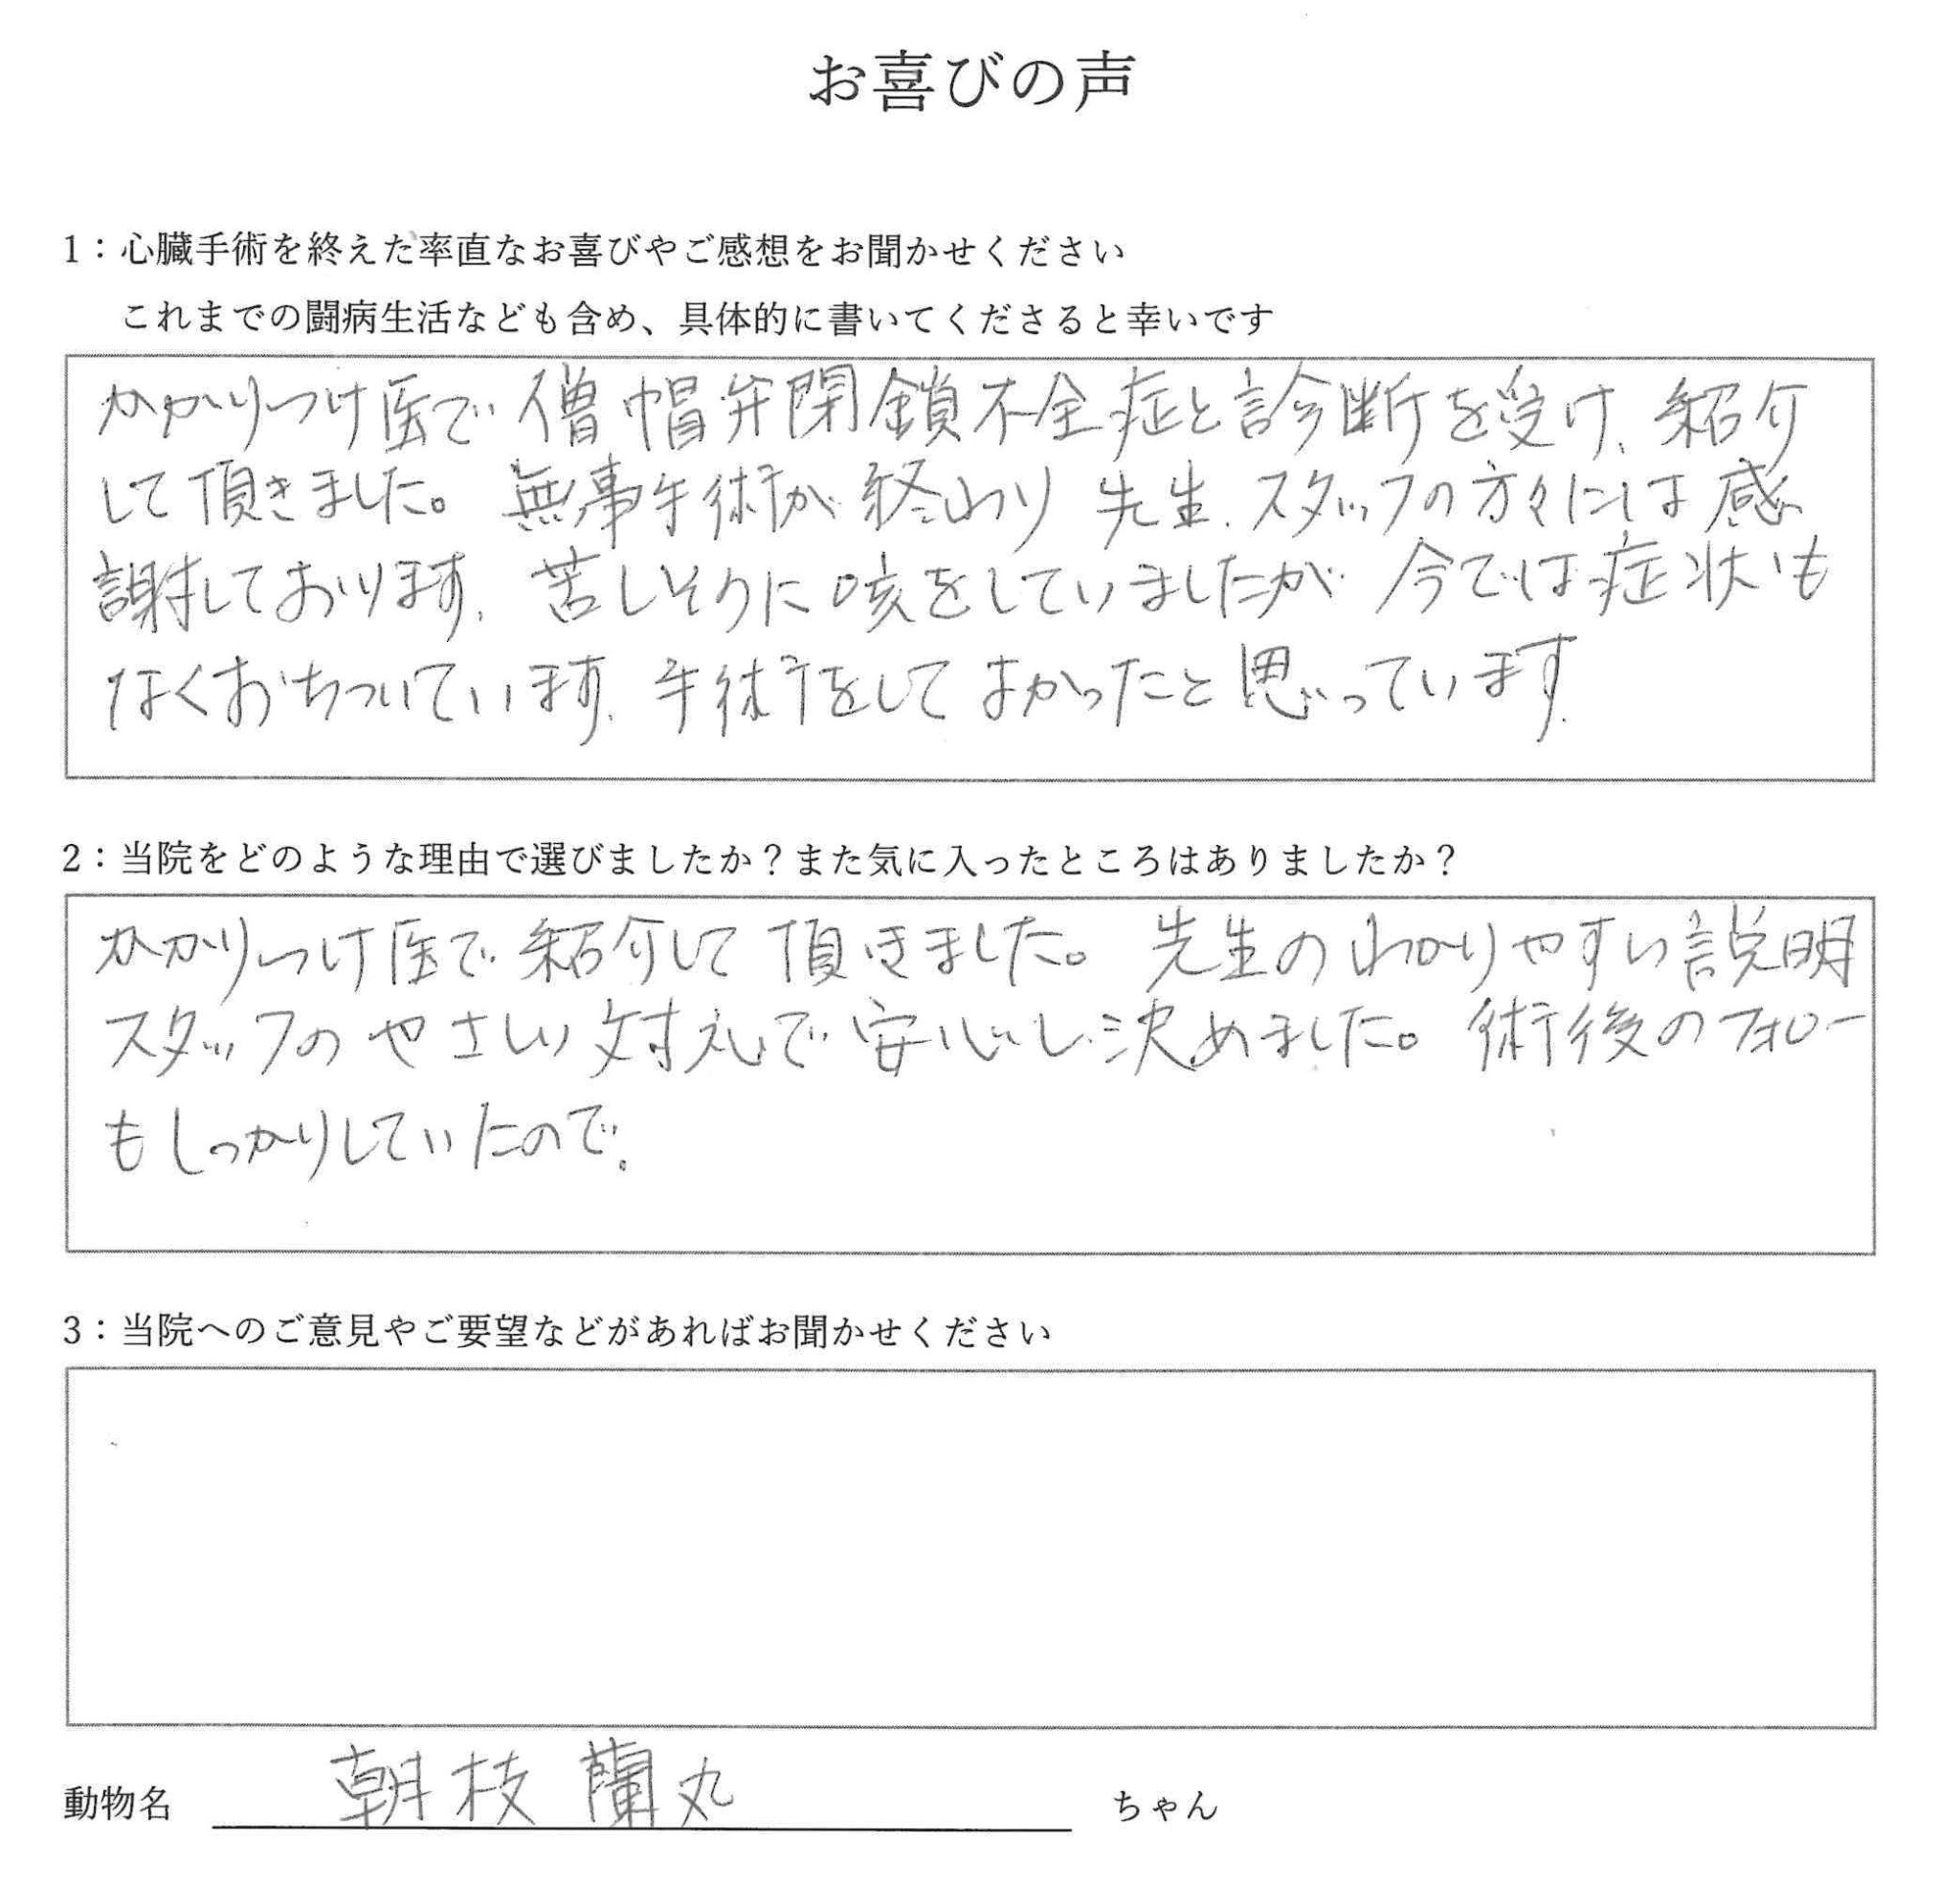 お喜びの声
1：心臓手術を終えた率直なお喜びやご感想をお聞かせください
これまでの闘病生活なども含め、具体的に書いてくださると幸いです
かかりつけ医で僧帽弁閉鎖不全症と診断を受け、紹介
して頂きました。無事手術が終わり先生、スタッフの方々には感
謝しております。苦しそうに咳をしていましたが今では症状も
なくおちついています。手術をしてよかったと思っています。
2：当院をどのような理由で選びましたか？また気に入ったところはありましたか？
かかりつけ医で紹介して頂きました。先生のわかりやすい説明
スタッフのやさしい対応で安心し決めました。術後のフォロー
もしっかりしていたので。
3：当院へのご意見やご要望などがあればお聞かせください
動物名 朝枝 蘭丸 ちゃん